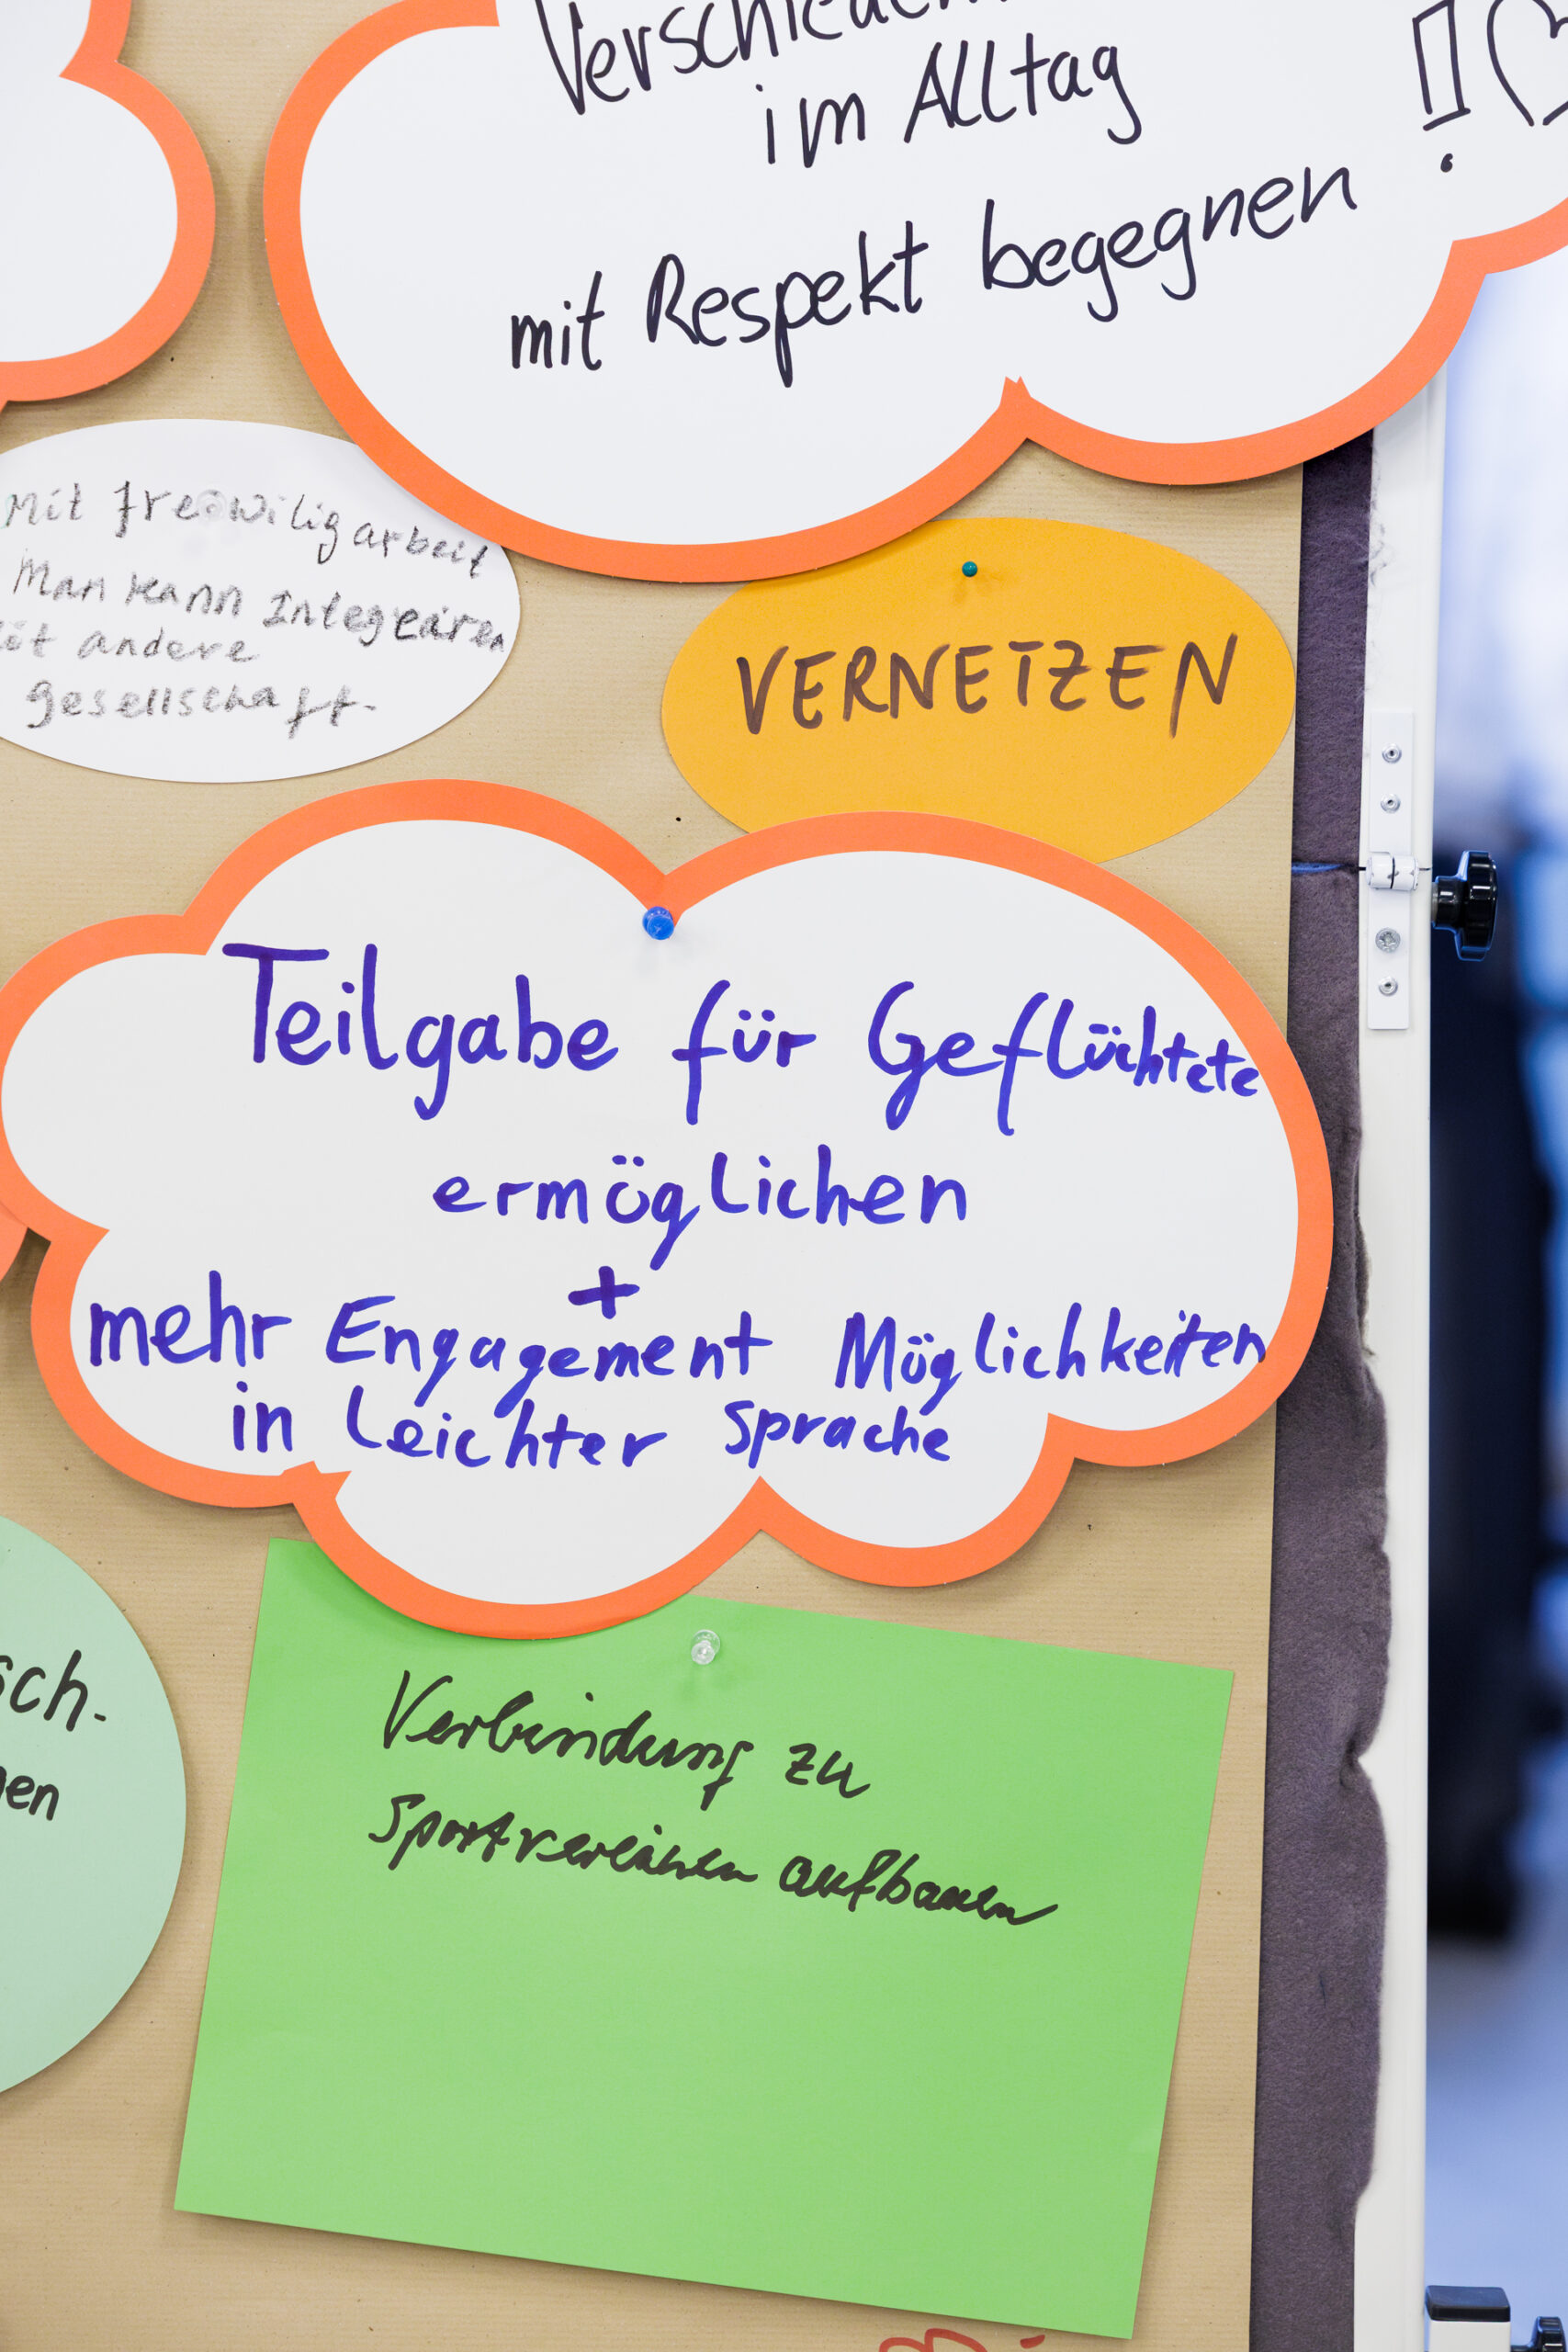 im Alltag
mit Respekt begegnen !
Mit freiwilig arbeit
Man kann Integrieren
andere
gesellschaft.
VERNETZEN
Teilgabe für Geflüchtete
ermöglichen
+
mehr Engagement Möglichkeiten
in leichter Sprache
sch-
en
Verbindung zu
Sportvereinen aufbauen